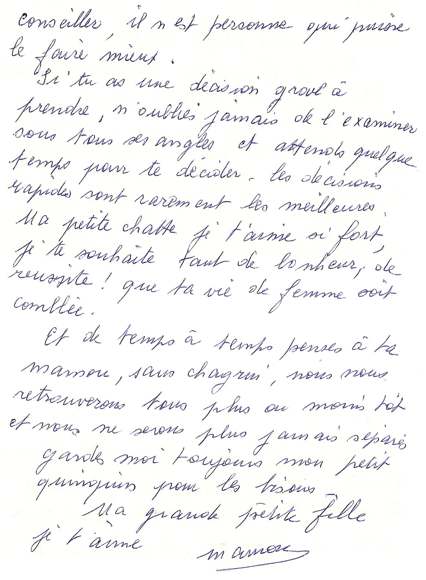 conseiller, il n'est personne qui puisse
le faire mieux.
Si tu as une décision grave à
prendre, n'oublies jamais de l'examiner
sous tous ses angles et attends quelque
temps pour te décider. les décisions
rapides sont rarement les meilleures.
Ma petite chatte je t'aime si fort,
je te souhaite tant de bonheur, de
reussite! que ta vie de femme soit
comblée.
Et de temps à temps penses à ta
mamou, sans chagrin, nous nous
retrouverons tous plus ou moins tôt
et nous ne serons plus jamais séparés
gardes moi toujours mon petit
quinquin pour les bisous
Ma grande petite fille
je t'aime mamou